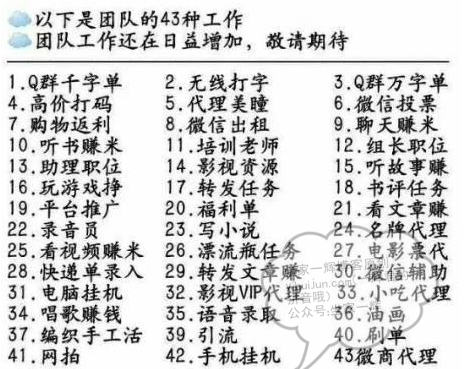 以下是团队的43种工作
团队工作还在日益增加,敬请期待
1.Q群千字单 2.无线打字 3.Q群万字单
4.高价打码 5.代理美瞳 6.微信投票
7.购物返利 8.微信出租 9.聊天赚米
10.听书赚米 11.培训老师 12.组长职位
13.助理职位 14.影视资源 15.听故事赚
16.玩游戏挣 17.转发任务 18.书评任务
19.平台推广 20.福利单 21.看文章赚
22.录音员 23.写小说 24.名牌代理
25.看视频赚米 26.漂流瓶任务 27.电影票代
28.快递单录入 29.转发文章赚 30.微信辅助
31.电脑挂机 32.影视VIP代理 33.小吃代理
34.唱歌赚钱 35.语音录取 36.油画
37.编织手工活 39.引流 40.刷单
41.网拍 42.手机挂机 43微商代理